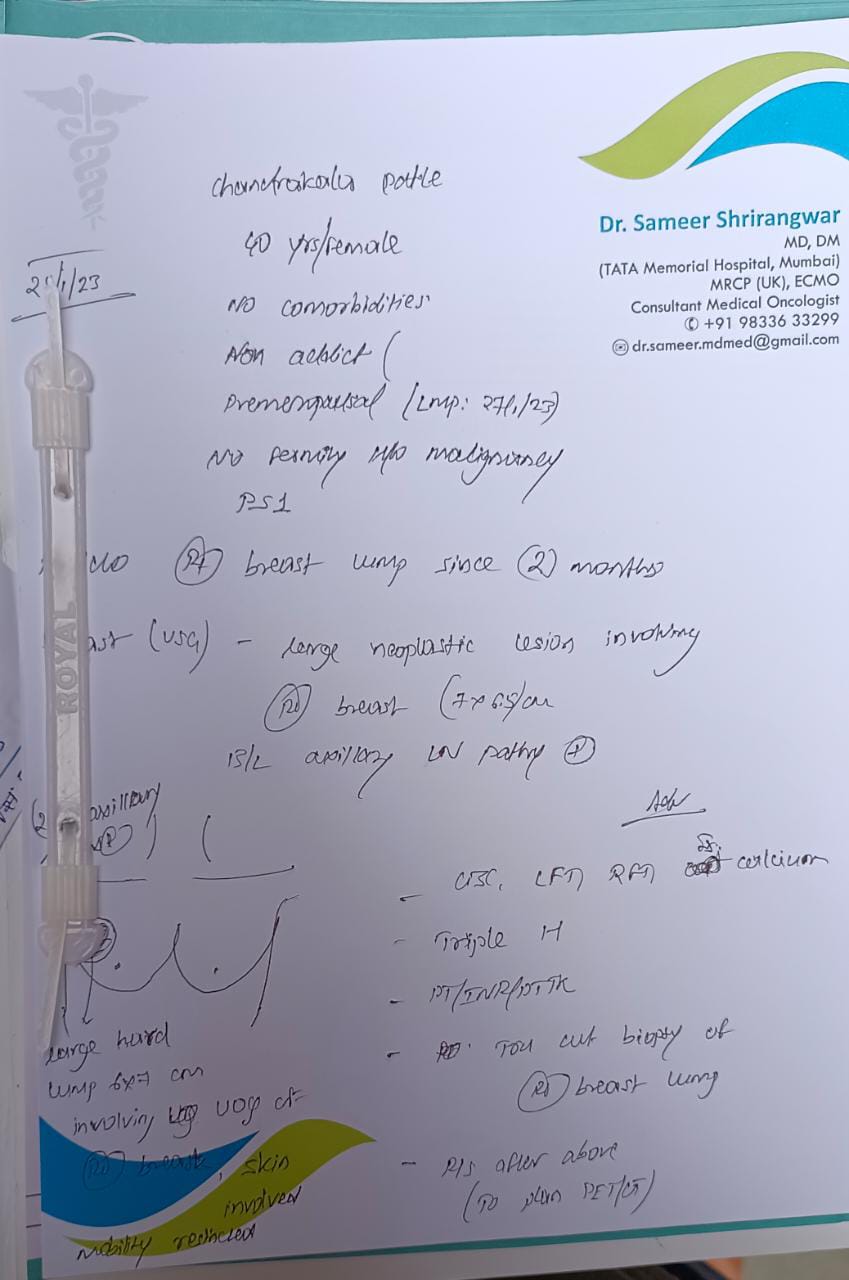 Dr. Sameer Shrirangwar
MD, DM
(TATA Memorial Hospital, Mumbai)
MRCP (UK), ECMO
Consultant Medical Oncologist
+91 98336 33299
dr.sameer.mdmed@gmail.com
Chandrakala
40 yrs/female
/1/23
NO comorbidities
Non addict (
Premenopausal (LMP: 27/1/23)
No family H/O malignancy
PS1
C/O Rt breast lump since (2) months
(USG) - large neoplastic lesion involving
Rt breast (7x6.5)cm
B/L axillary LN pathy +
axillary
Adv
- CBC, LFT, RFT, Sr. calcium
- Triple H
- PT/INR/
- Tru cut biopsy of
Rt breast lump
- R/S after above
(To plan PET/CT)
Large hard
lump 6x7 cm
involving UOQ of
Rt breast, skin
involved
mobility restricted
ROYAL